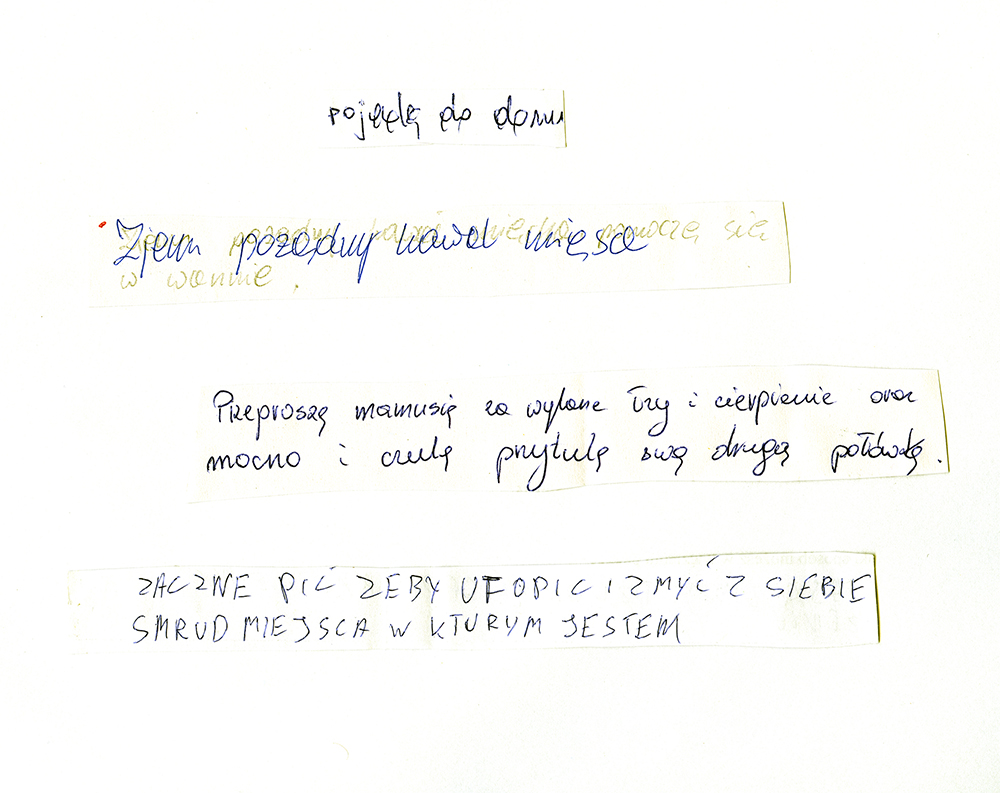 pojędę do domu
Zjem pożądny kawał mięsa
w wannie.
Przeproszę mamusię za wylane łzy i cierpienie oraz
mocno i czule przytulę swą drugą połówkę.
ZACZNE PIĆ ZEBY UTOPIC I ZMYĆ Z SIEBIE
SMRUD MIEJSCA W KTURYM JESTEM